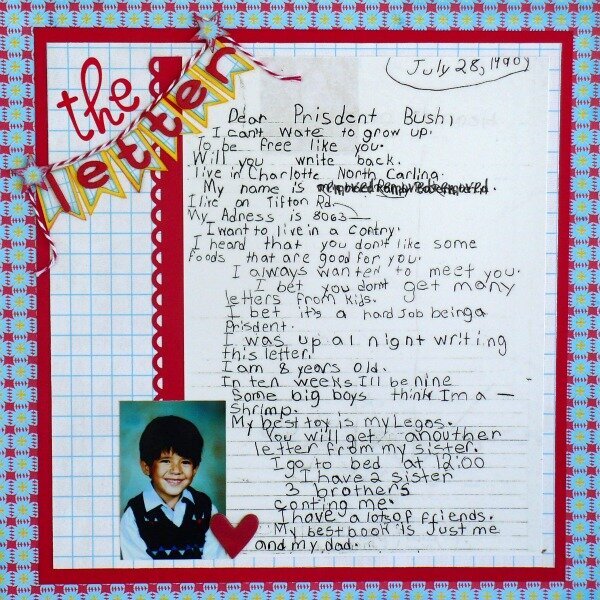 the
letter
July 28, 1990
Dear Prisdent Bush,
I can't wate to grow up.
To be free like you.
Will you write back.
I live in Charlotte North Carlina.
My name is
I live on Tifton Rd.
My Adress is 8063
I want to live in a contry.
I heard that you don't like some
foods that are good for you.
I always wanted to meet you.
I bet you don't get many
letters from kids.
I bet it's a hard job being a
prisdent.
I was up al night writing
this letter.
I am 8 years old.
In ten weeks I'll be nine
Some big boys think I'm a
shrimp.
My best toy is my Legos.
You will get anouther
letter from my sister.
I go to bed at 12:00
I have 2 sister
3 brothers
conting me.
I have a lots of friends.
My best book is Just me
and my dad.